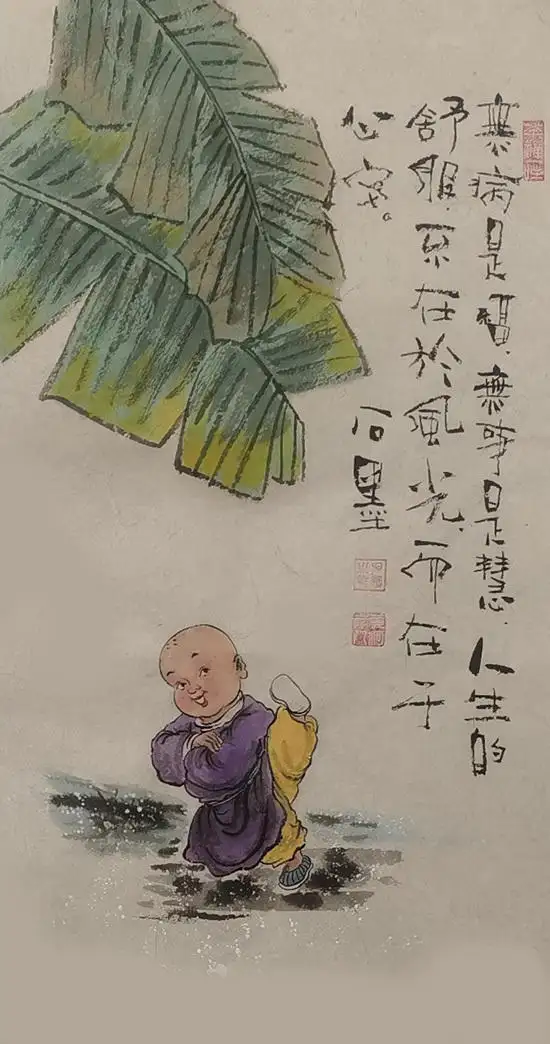 無病是福、無事是慧、人生的
舒服、不在於風光、而在于
心安。
石墨